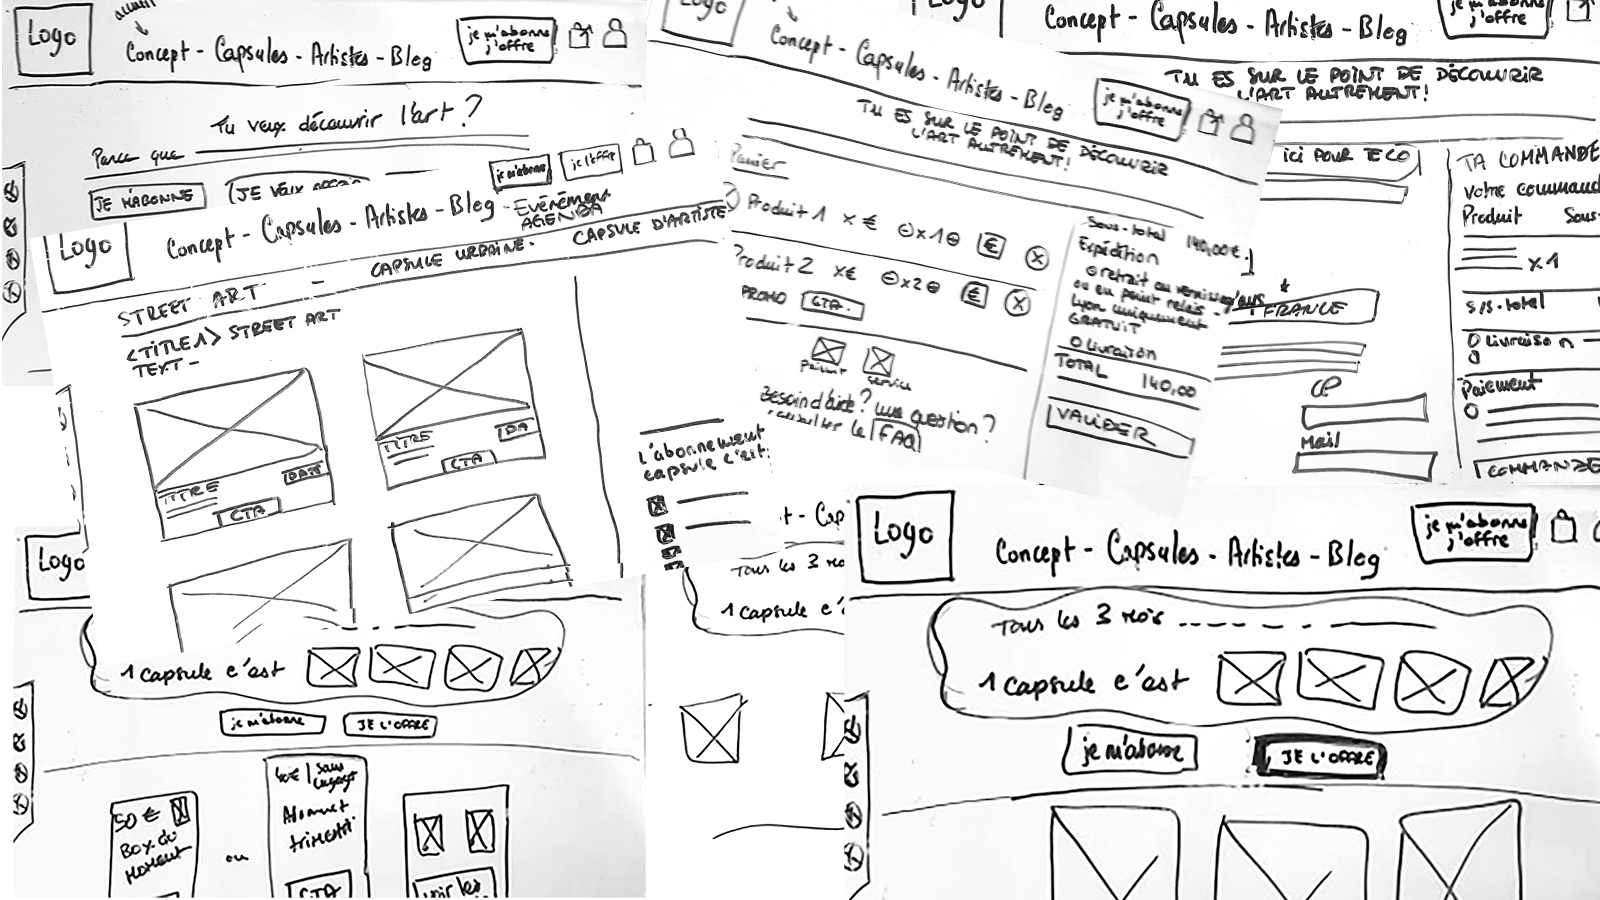 accueil
Logo
Concept - Capsules - Artistes - Blog
je m'abonne
j'offre
Tu veux découvrir l'art ?
Parce que
JE M'ABONNE
JE VEUX
Logo
Concept - Capsules - Artistes - Blog - Evénement
AGENDA
je m'abonne
je l'offre
STREET ART - CAPSULE URBAINE. CAPSULE D'ARTISTE
<TITLE 1> STREET ART
TEXT -
TITRE
DATE
CTA
TITRE
DA
CTA
Logo
Concept - Capsules - Artistes - Blog
je m'abonne
j'offre
TU ES SUR LE POINT DE DÉCOUVRIR
L'ART AUTREMENT!
Panier
Produit 1 x € - x 1 + € X
Produit 2 x € - x 2 + € X
PROMO CTA.
Paiement
service
Besoin d'aide ? une question ?
consulter le FAQ
Sous-total 140,00€.
Expédition
O retrait au vernissage
ou en point relais -
Lyon uniquement
GRATUIT
O Livraison
TOTAL 140,00
VALIDER
Logo
Concept - Capsules - Artistes - Blog
je m'abonne
j'offre
TU ES SUR LE POINT DE DÉCOUVRIR
L'ART AUTREMENT!
ICI POUR TE CO
FRANCE
CP
Mail
TA COMMANDE
Votre command
Produit Sous-
x 1
s/s-total
O Livraison -
Paiement
COMMANDE
L'abonnement
capsule c'est:
t - Cap
Tous les 3 mo
1 capsule c'
Logo
1 capsule c'est
je m'abonne
JE L'OFFRE
50 €
Box du
moment
ou
sans
engagt
Abonnet
trimestri
CTA
voir les
Logo
Concept - Capsules - Artistes - Blog
je m'abonne
j'offre
Tous les 3 mois
1 capsule c'est
je m'abonne
JE L'OFFRE